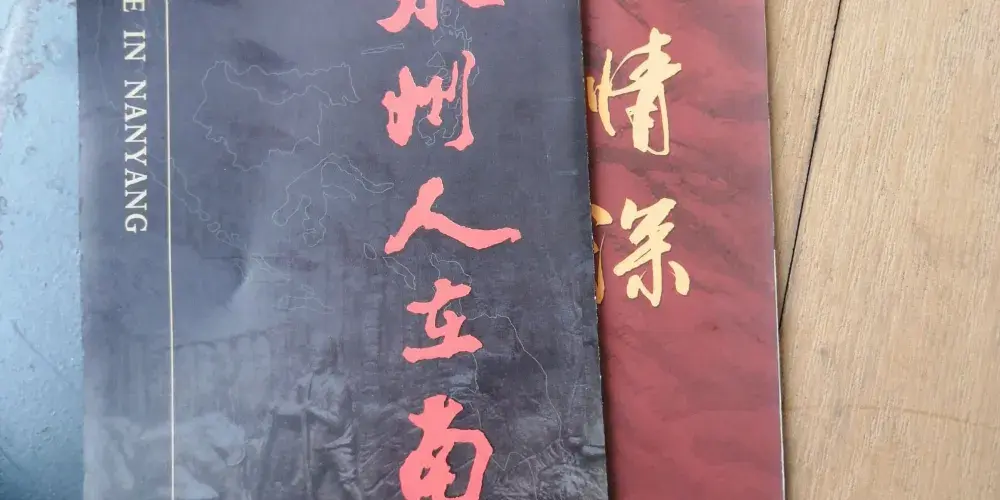 E IN NANYANG
州人在南
情深